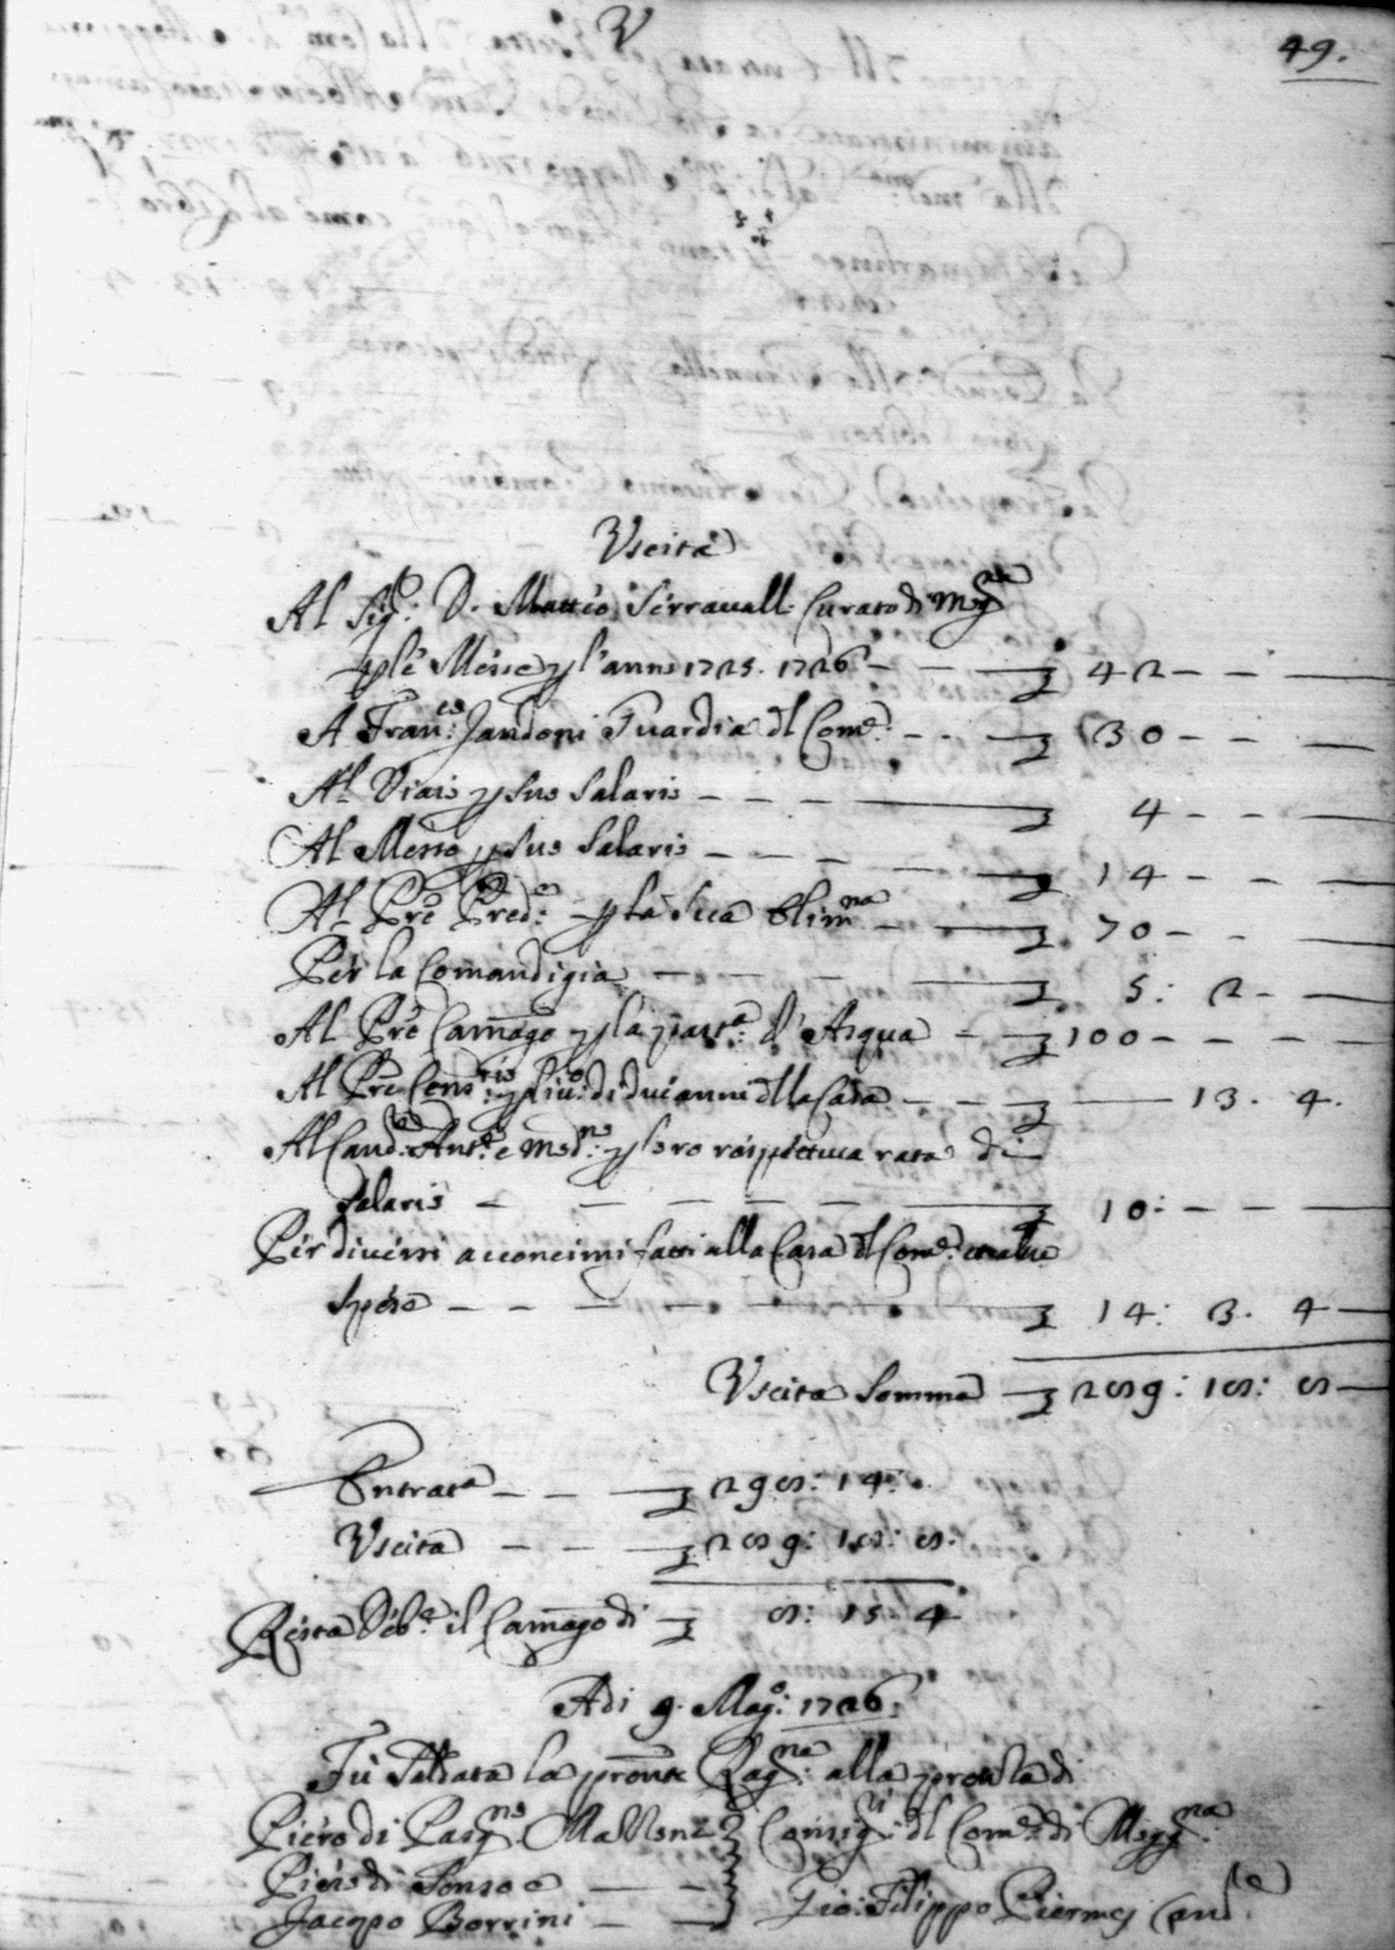 49.
Uscita
Al Sig.o: D. Matteo Serravall. Curato di
p le Messe p l'anno 1725. 1726 - - — 42 - - —
A Fran.co: Jandoni Guardia dl Com.e: - - — 30 - - —
Al Viaio p suo Salario - - - — 4 - - —
Al Messo p suo Salario - - - — 14 - - —
Al Pre Pred.e: p la sua Elim.na - — 70 - - —
Per la Comandigia — - - — 5: 2 - —
Al Pre Camago p la part.a: d'Acqua - — 100 - - - —
Al Pre p liv.o: di due anni dlla Casa - - — — 13. 4.
Al Cand.re: Ant.e: e Mod.no: p loro respettiva rata di
Salario - - - - - — 10: - - —
Per diversi acconcimi fatti alla Casa dl Com.e: et altre
Spese - - - - — 14: 3. 4 —
Uscita Somma — 289: 18: 8 —
Entrat.a - - — 298: 14:
Uscita - - — 289: 18: 8.
Resta Deb.e il Camago di — 8: 15. 4
Adi 9. Mag.o: 1726.
Fù Saldata la pronte Rag.ne: alla di
Piero di Pasq.no Consig.ri: dl Com.e: di
Piero di — -
Jacopo Borrini — - Gio: Filippo Canc.re